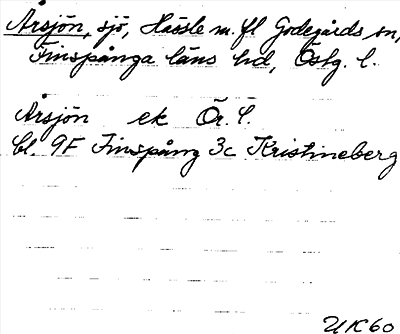 Årsjön, sjö, Hässle m. fl Godegårds sn,
Finspånga läns hd, Östg. l.
Årsjön ek Ör. l.
bl. 9F Finspång 3c Kristineberg
UK60